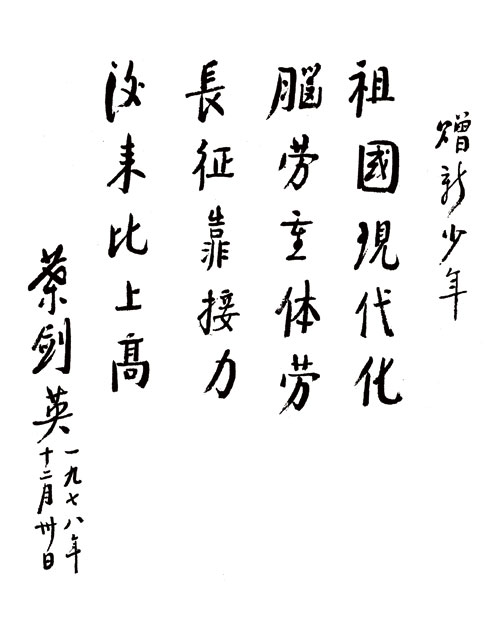 贈新少年
祖國現代化
腦劳重体劳
長征靠接力
後来比上高
葉剑英
一九七八年
十二月卅日